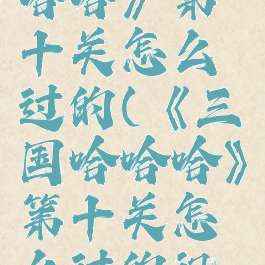 哈哈》第
十关怎么
过的(《三
国哈哈哈》
第十关怎
么过的视